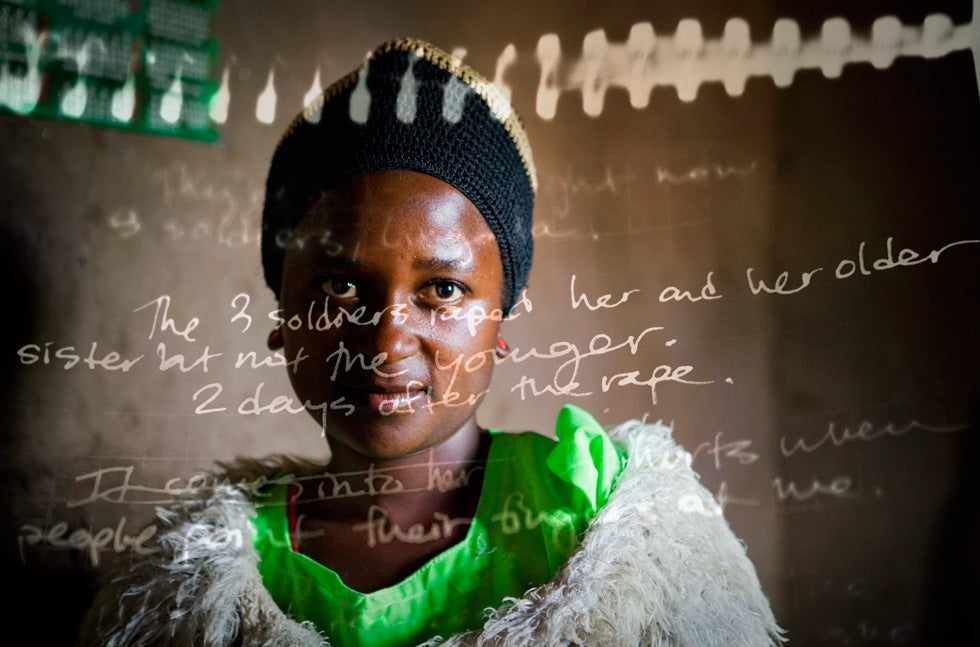 right now
soldiers,
The 3 soldiers raped her and her older
sister but not the younger.
2 days after the rape.
It comes into her hurts when
people point their fingers at me.